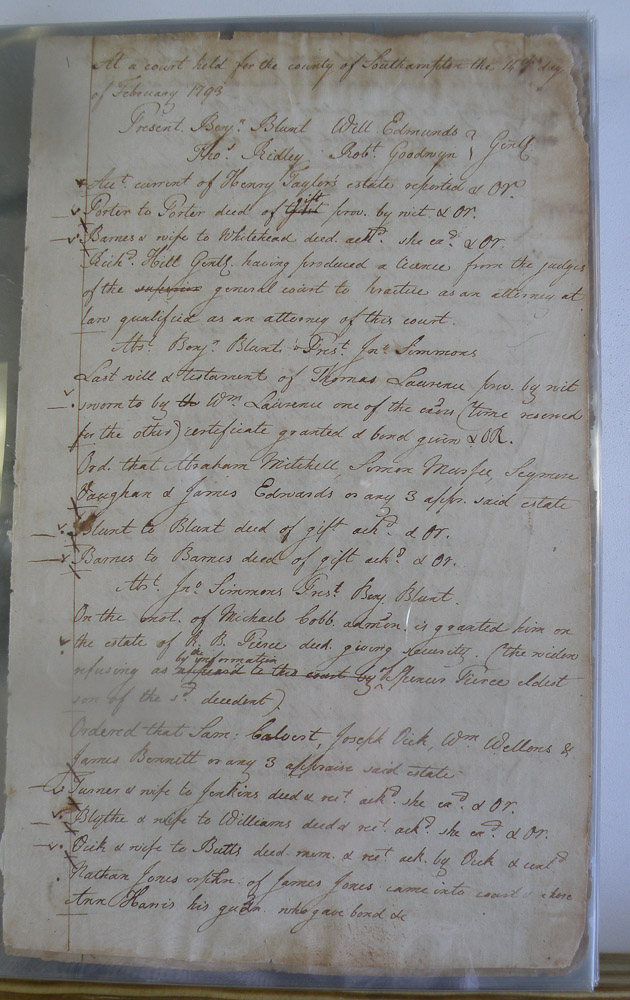 At a court held for the county of Southampton the 14th day
of February 1793
Present. Benjn. Blunt Will Edmunds
Thos. Ridley Robt. Goodwyn } Gentl
Acct current of Henry Taylor's estate reported & OR.
Porter to Porter deed of gift prov. by wit. & Or.
Barnes & wife to Whitehead deed ackd. she exd. & Or
Richd. Hill Gentl. having produced a licence from the judges
of the superior general court to practice as an attorney at
law qualified as an attorney of this court.
Abst. Benjn. Blunt & Prest. Jno. Simmons
Last will & testament of Thomas Laurence prov. by wit
sworn to by the Wm. Laurence one of the exors (time reserved
for the other) certificate granted & bond given & OR.
Ord. that Abraham Mitchell, Simon Murfee, Seymour
Vaughan & James Edwards or any 3 appr. said estate
Blunt to Blunt deed of gift ackd. & Or.
Barnes to Barnes deed of gift ackd. & Or.
Abst. Jno Simmons Prest. Benj Blunt.
On the mot. of Michael Cobb admon. is granted him on
the estate of R. B. Pierce decd. giving security. (the widow
by the information
refusing as appeard to this court by Spencer Pierce eldest
son of the sd. decedent)
Ordered that Sam: Calvert, Joseph Vick, Wm Wellons &
James Bennett or any 3 appraise said estate
Turner & wife to Jenkins deed & rect. ackd. she exd. & Or.
Blythe & wife to Williams deed & rect. ackd. she exd. & Or.
Vick & wife to Butts deed mem. & rect ack. by Vick &
Nathan Jones orphn. of James Jones came into court & chose
Ann Harris his gudn. who gave bond &c